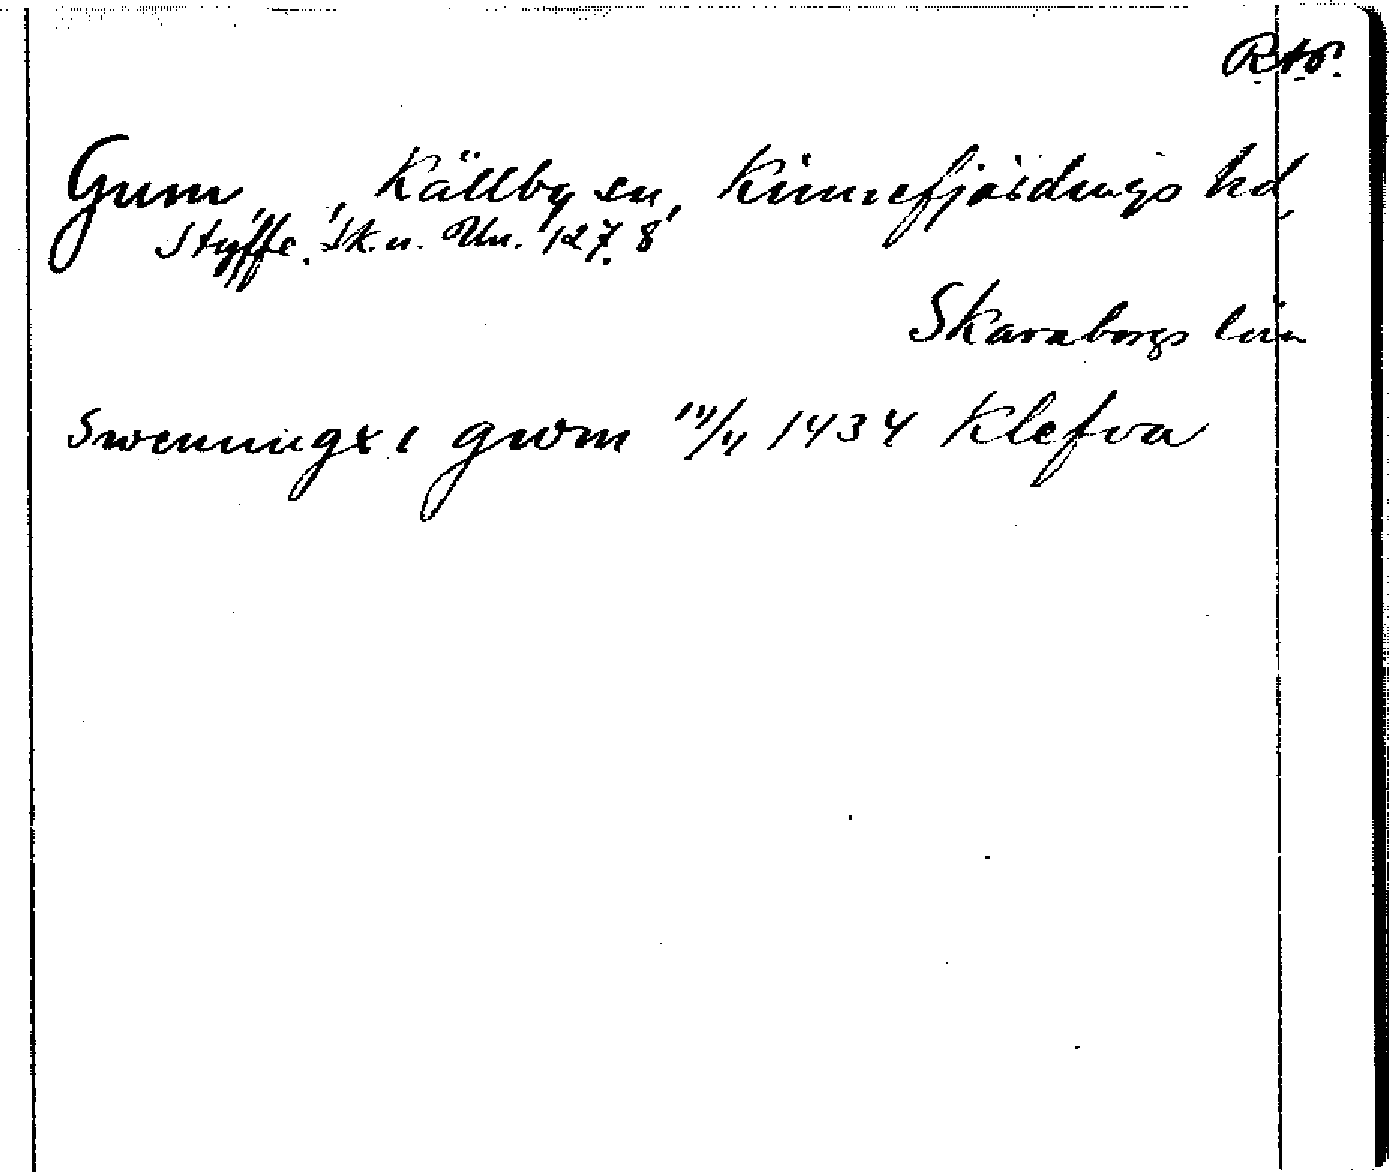 RAp.
Gum, Källby sn, Kinnefjärdings hd,
Styffe. Sk. u. Un. 127. 8
Skaraborgs län
Swenungx i gwm 14/4 1434 Klefva